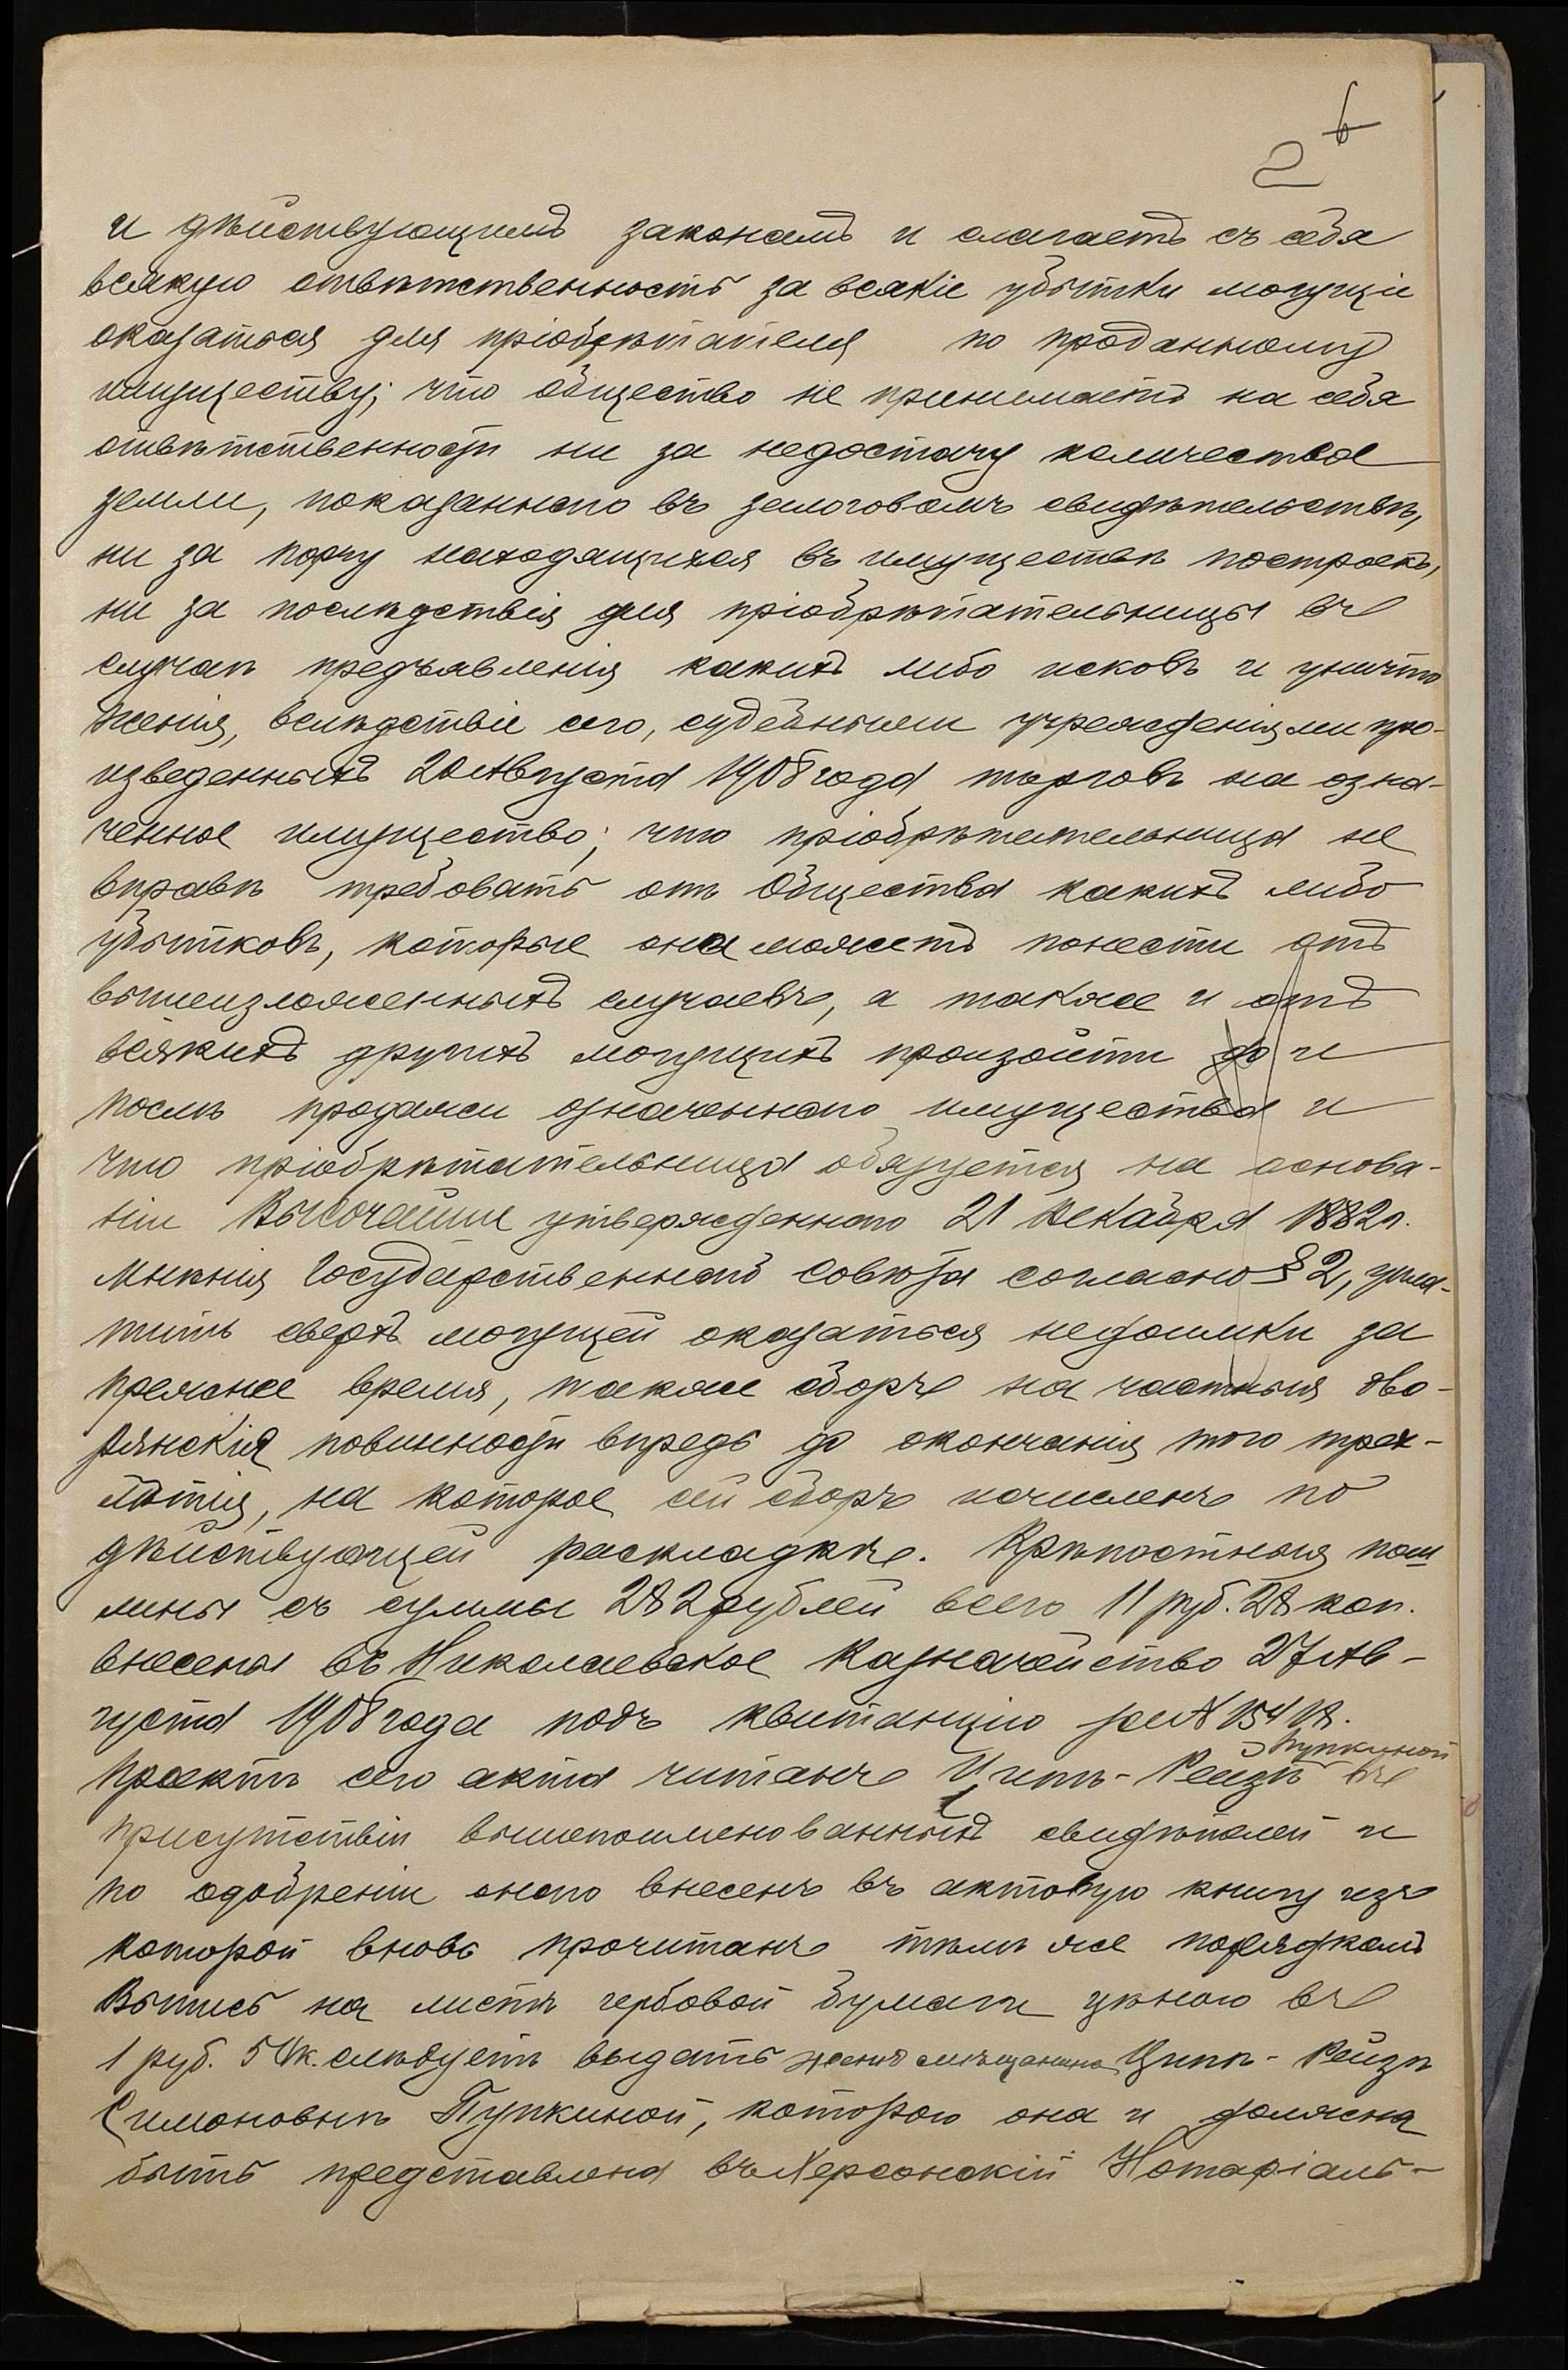 2
и дѣйствующимъ законамъ и слагаетъ съ себя
всякую отвѣтственность за всякіе убытки могущіе
оказаться для пріобрѣтателя по проданному
имуществу; что общество не принимаетъ на себя
отвѣтственности ни за недостачу количества
земли, показаннаго въ залоговомъ свидѣтельствѣ,
ни за порчу находящихся въ имуществѣ построекъ,
ни за послѣдствія для пріобрѣтательницы въ
случаѣ предъявленія какихъ либо исковъ и уничто
женія, вслѣдствіе сего, судебными учрежденіями про-
изведенныхъ 20 Августа 1908 года торговъ на озна-
ченное имущество; что пріобрѣтательница не
вправѣ требовать отъ Общества какихъ либо
убытковъ, которые она можетъ понести отъ
вышеизложенныхъ случаевъ, а также и отъ
всякихъ другихъ могущихъ произойти до и
послѣ продажи означеннаго имущества и
что пріобрѣтательница обязуется на основа-
ніи Высочайше утвержденнаго 21 Декабря 1882 г.
мнѣнія Государственнаго Совѣта согласно § 2, упла-
тить сверхъ могущей оказаться недоимки за
прежнее время, также сборъ на частныя дво-
рянскія повинности впредь до окончанія того трех-
лѣтія, на которое сей сборъ исчисленъ по
дѣйствующей раскладкѣ. Крѣпостныя пош
лины съ суммы 282 рублей всего 11 руб. 28 коп.
внесены въ Николаевское Казначейство 27 Ав-
густа 1908 года подъ квитанцію за № 15418.
Пупкиной
Проектъ сего акта читанъ Ципѣ-Рейзѣ въ
присутствіи вышепоименованныхъ свидѣтелей и
по одобреніи онаго внесенъ въ актовую книгу изъ
которой вновь прочитанъ тѣмъ же порядкомъ
Выпись на листѣ гербовой бумаги цѣною въ
1 руб. 50 к. слѣдуетъ выдать женѣ мѣщанина Ципѣ-Рейзѣ
Симоновнѣ Пупкиной, которою она и должна
быть представлена въ Херсонскій Нотаріаль-